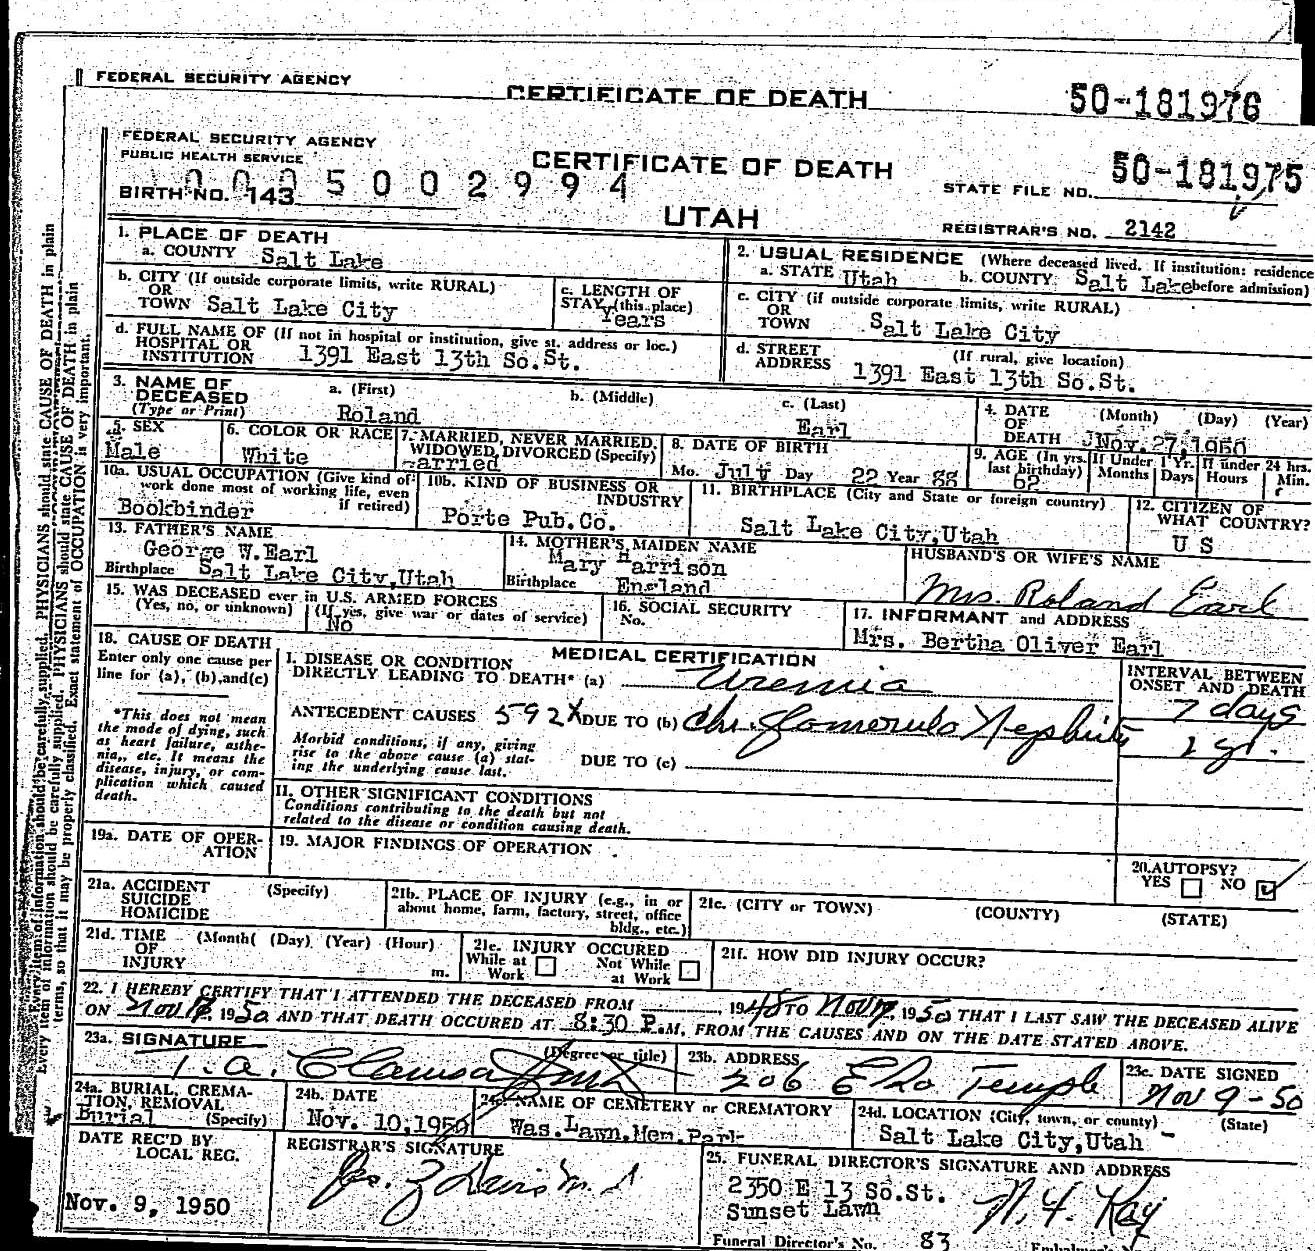 FEDERAL SECURITY AGENCY
CERTIFICATE OF DEATH
50-181976
FEDERAL SECURITY AGENCY
PUBLIC HEALTH SERVICE
CERTIFICATE OF DEATH
50-181975
STATE FILE NO.
5002994
BIRTH NO. 143
UTAH
REGISTRAR'S NO. 2142
1. PLACE OF DEATH
a. COUNTY Salt Lake
2. USUAL RESIDENCE (Where deceased lived. If institution: residence
a. STATE Utah b. COUNTY Salt Lake before admission)
b. CITY (If outside corporate limits, write RURAL)
OR
TOWN Salt Lake City
c. LENGTH OF
STAY (this place)
Years
c. CITY (if outside corporate limits, write RURAL)
OR
TOWN Salt Lake City
d. FULL NAME OF (If not in hospital or institution, give st. address or loc.)
HOSPITAL OR
INSTITUTION 1391 East 13th So.St.
d. STREET (If rural, give location)
ADDRESS 1391 East 13th So.St.
3. NAME OF
DECEASED
(Type or Print)
a. (First) b. (Middle) c. (Last)
Roland Earl
4. DATE (Month) (Day) (Year)
OF
DEATH Nov. 1950
5. SEX
Male
6. COLOR OR RACE
White
7. MARRIED, NEVER MARRIED,
WIDOWED, DIVORCED (Specify)
arried
8. DATE OF BIRTH
Mo. July Day 22 Year 88
9. AGE (In yrs.
last birthday)
62
If Under 1 Yr.
Months Days
If under 24 hrs.
Hours Min.
10a. USUAL OCCUPATION (Give kind of
work done most of working life, even
if retired)
Bookbinder
10b. KIND OF BUSINESS OR
INDUSTRY
Porte Pub.Co.
11. BIRTHPLACE (City and State or foreign country)
Salt Lake City,Utah
12. CITIZEN OF
WHAT COUNTRY?
U S
13. FATHER'S NAME
George W.Earl
Birthplace Salt Lake City,Utah
14. MOTHER'S MAIDEN NAME
Mary Harrison
Birthplace England
HUSBAND'S OR WIFE'S NAME
Mrs. Roland Earl
15. WAS DECEASED ever in U.S. ARMED FORCES
(Yes, no, or unknown) (If yes, give war or dates of service)
No
16. SOCIAL SECURITY
No.
17. INFORMANT and ADDRESS
Mrs. Bertha Oliver Earl
18. CAUSE OF DEATH
Enter only one cause per
line for (a), (b), and (c)
*This does not mean
the mode of dying, such
as heart failure, asthe-
nia,, etc. It means the
disease, injury, or com-
plication which caused
death.
MEDICAL CERTIFICATION
I. DISEASE OR CONDITION
DIRECTLY LEADING TO DEATH* (a) Uremia
ANTECEDENT CAUSES 592X DUE TO (b) Chr. Glomerulo Nephritis
Morbid conditions, if any, giving
rise to the above cause (a) stat-
ing the underlying cause last.
DUE TO (c)
INTERVAL BETWEEN
ONSET AND DEATH
7 days
yr.
II. OTHER SIGNIFICANT CONDITIONS
Conditions contributing to the death but not
related to the disease or condition causing death.
19a. DATE OF OPER-
ATION
19. MAJOR FINDINGS OF OPERATION
20. AUTOPSY?
YES NO
21a. ACCIDENT (Specify)
SUICIDE
HOMICIDE
21b. PLACE OF INJURY (e.g., in or
about home, farm, factory, street, office
bldg., etc.)
21c. (CITY or TOWN) (COUNTY) (STATE)
21d. TIME (Month( (Day) (Year) (Hour)
OF
INJURY m.
21e. INJURY OCCURED
While at Not While
Work at Work
21f. HOW DID INJURY OCCUR?
22. I HEREBY CERTIFY THAT I ATTENDED THE DECEASED FROM , 1948 TO Nov 1950 THAT I LAST SAW THE DECEASED ALIVE
ON Nov 1950 AND THAT DEATH OCCURED AT 8:30 P.M, FROM THE CAUSES AND ON THE DATE STATED ABOVE.
23a. SIGNATURE (Degree or title)
T. A. Clawson
23b. ADDRESS
206 E So Temple
23c. DATE SIGNED
Nov 9-50
24a. BURIAL, CREMA-
TION, REMOVAL
Burial (Specify)
24b. DATE
Nov. 10,1950
24c. NAME OF CEMETERY or CREMATORY
Was.Lawn.Mem.Park
24d. LOCATION (City, town, or county) (State)
Salt Lake City,Utah
DATE REC'D BY
LOCAL REG.
Nov. 9, 1950
REGISTRAR'S SIGNATURE
25. FUNERAL DIRECTOR'S SIGNATURE AND ADDRESS
2350 E 13 So.St.
Sunset Lawn
Funeral Director's No. 83